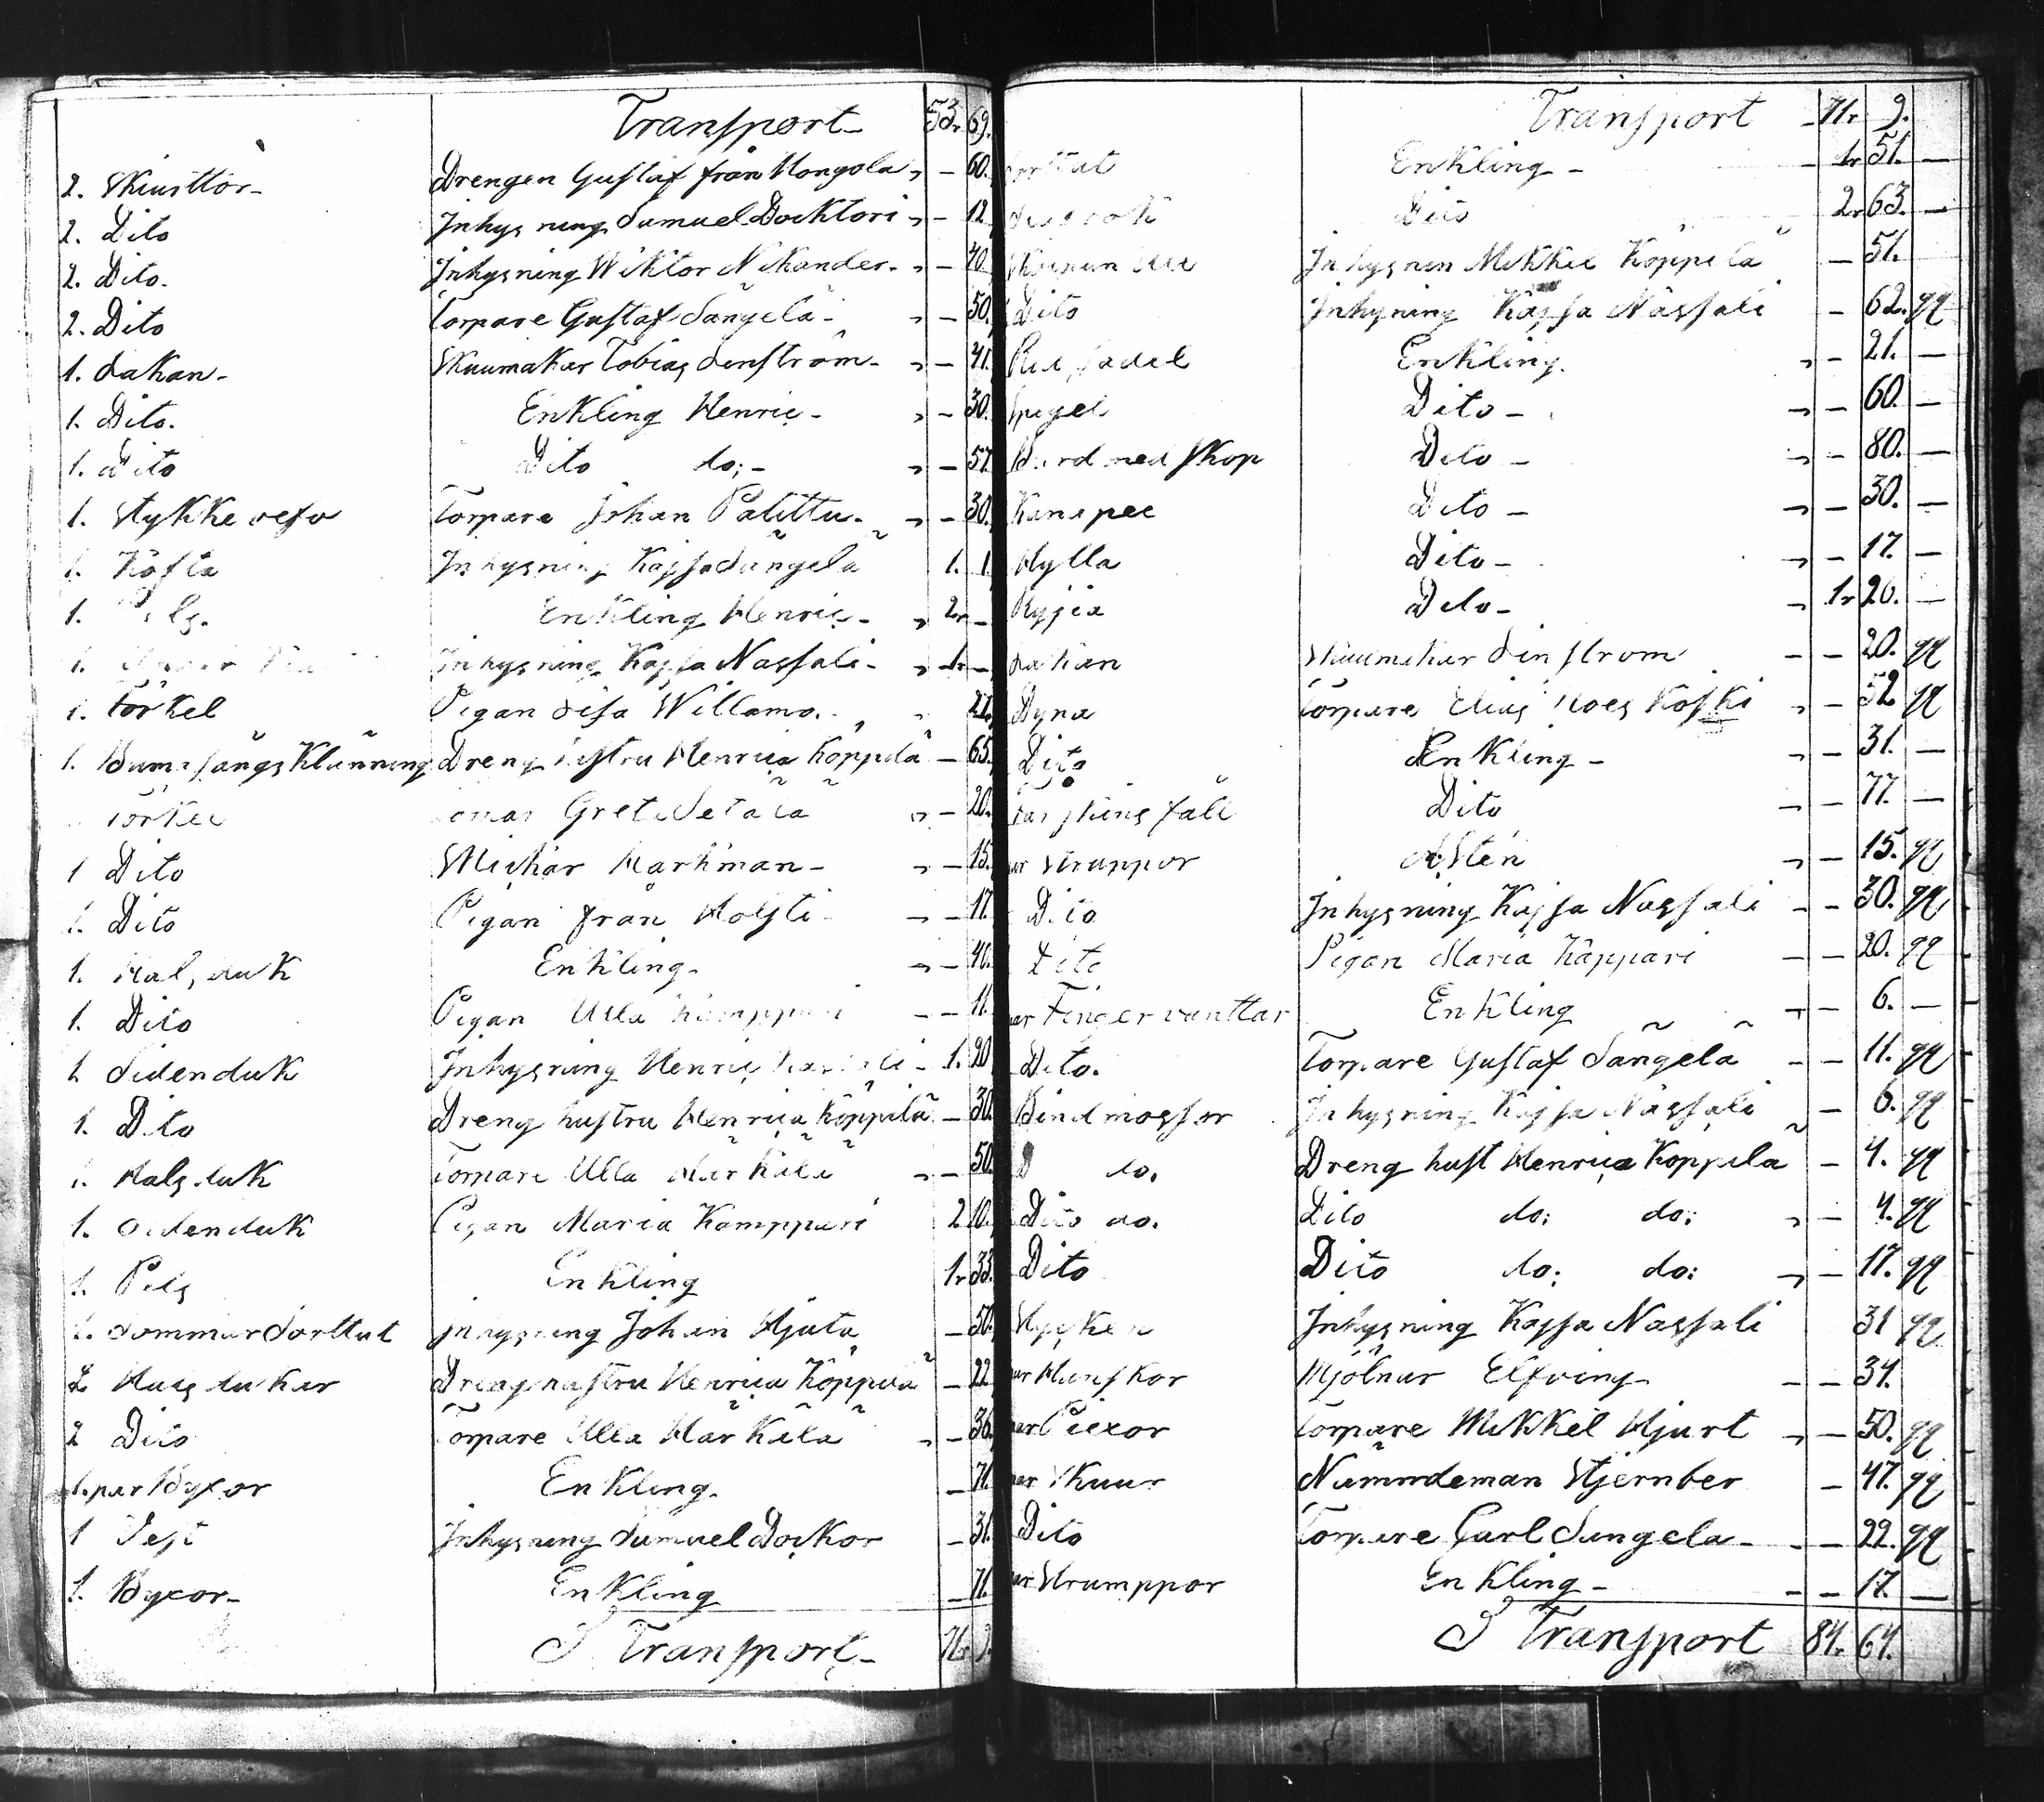 Transport 53r 69.
2. Skiusttor Drengen Gustaf från Hongola " – 60.
2. Dito Inhysning Samuel Docktori " – 12
2. Dito. Inhysning Wiktor Nikander. " – 40
2. Dito Torpare Gustaf Sängelä " – 50.
1. Lakan Skuumakar Tobias Lenström " – 41.
1. Dito. Enkling Henric " – 30.
1. Dito Dito do; " – 57.
1. Stykke Torpare Johan Palittu. " – 30.
1. Köfta Inhysning Kajsa Sängelä 1. 1.
1. Enkling Henric " 2r –
1. Inhysning Kajsa Nassali " 1r –
1. Förkel Pigan Lisa Willamo. 22.
1. Klänning Dreng hustru Henrica Köppilä – 65.
Förkel Greta Setälä " – 20.
1 Dito Markman " – 15.
1. Dito Pigan från Holsti – 17.
1. Halsduk Enkling. – 46.
1. Dito Pigan Ulla – 11.
1. Sidenduk Inhysning Henric 1. 20
1. Dito Dreng hustru Henrica Köppilä – 30.
1. Halsduk Torpare Ulla Märkälä – 50.
1. Sidenduk Pigan Maria Kamppari 2 10.
1. Pels Enkling 1r 33.
1. Sommar Sorttut Inhysning Johan Hjuta – 50.
2 Halsdukar Dreng hustru Henrica Köppilä – 22
2 Dito Torpare Ulla Märkälä " – 36.
1. par Byxor Enkling – 71.
1 Inhysning Samuel Dockor – 31.
1. Byxor Enkling – 71.
S Transport 71r 9.
Transport 71r 9.
Enkling 1r 51. –
Dito 2r 63. –
Inhysnin Mikkel Köppilä – 51.
Dito Inhyning Kajsa Nassali – 62. qq
Rid sadel Enkling. " – 21. –
Spegel Dito " – 60. –
Bord med skop Dito " – 80. –
Kanapee Dito " – 30. –
Hylla Dito " – 17. –
Ryjia Dito " 1r 20. –
Lakan Skuumakar Linstrom – – 20. qq
Dyna Torpare Elias Koski " – 52 qq
Dito Enkling – – 31. –
Fårskins fäll Dito – – 77. –
par Strumpor A. Sten " – 15. qq
Dito Inhysning Kajsa Nassali – – 30. qq
Dito Pigan Maria Kappari – – 20. qq
par Finger vanttar Enkling – – 6. –
Dito. Torpare Gustaf Sängelä – – 11. qq
Bindmossor Inhysning Kajsa Nassali – 6. qq
D do. Dreng hust Henrica Köppilä – 4. qq
Dito do. Dito do; do; " – 4. qq
Dito Dito do; do; " – 17. qq
Inhysning Kajsa Nassali 31 qq
par Hanskor Mjölnar Elfving – – 34.
par Piexor Torpare Mikkel Hjurt " – 50. qq
par Skuur Nämndeman Stjernber – 47. qq
Dito Torpare Carl Sängelä – – 22. qq
par Strumppor Enkling – – 17. –
S Transport 84r 64.